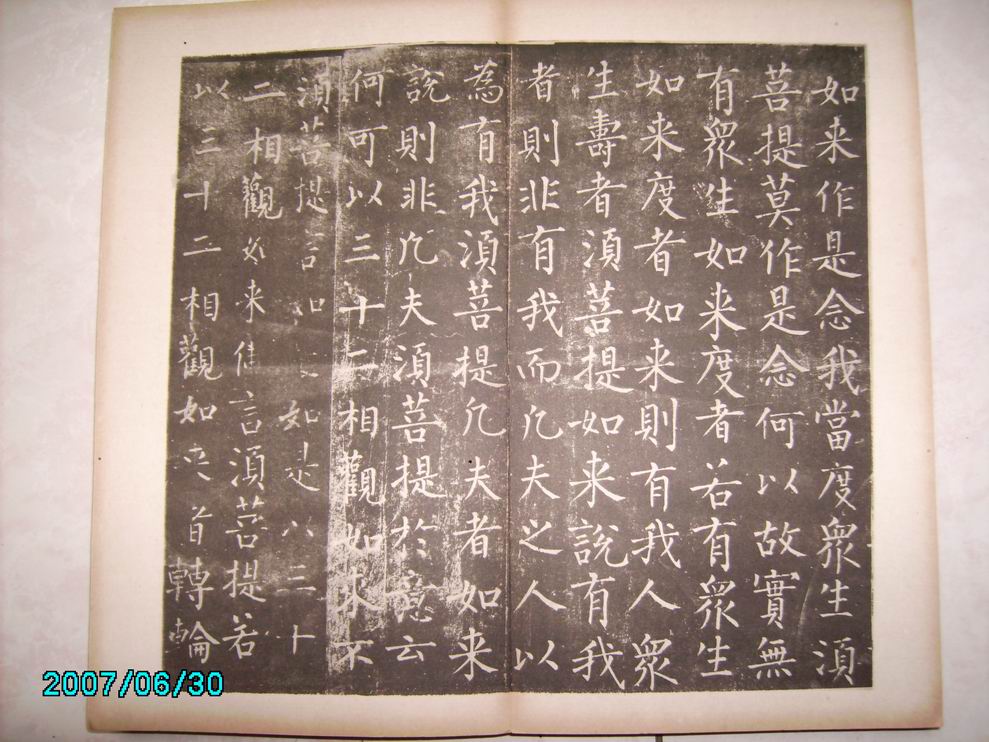 如来作是念我當度衆生湏
菩提莫作是念何以故實無
有衆生如来度者若有衆生
如来度者如来則有我人衆
生壽者湏菩提如来說有我
者則非有我而凡夫之人以
為有我湏菩提凡夫者如来
說則非凡夫湏菩提於意云
何可以三十二相觀如来不
湏菩提言如是以三十
二相觀如来佛言湏菩提若
以三十二相觀如来者轉輪
2007/06/30